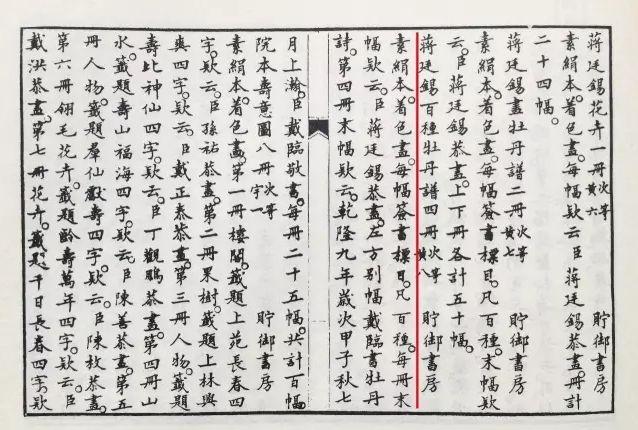 蔣廷錫花卉一冊次等黃六 貯御書房
素絹本。着色畫。每幅款云臣蔣廷錫恭畫。冊計
二十四幅。
蔣廷錫畫牡丹譜二冊次等黃七 貯御書房
素絹本。着色畫。每幅簽書標目。凡百種。末幅款
云。臣蔣廷錫恭畫。上下冊各計五十幅。
蔣廷錫百種牡丹譜四冊次等黃八 貯御書房
素絹本。着色畫。每幅簽書標目。凡百種。每冊末
幅款云。臣蔣廷錫恭畫。左方別幅戴臨書牡丹
詩。第四冊末幅款云。乾隆九年歲次甲子秋七
月上瀚。臣戴臨敬書。每冊二十五幅。共計百幅
院本壽意圖八冊次等宇一 貯御書房
素絹本。着色畫。第一冊樓閣。籤題上苑長春四
字。款云。臣孫祜恭畫。第二冊果樹。籤題上林興
爽四字。款云。臣戴正泰恭畫。第三冊人物。籤題
壽比神仙四字。款云。臣丁觀鵬恭畫。第四冊山
水。籤題壽山福海四字。款云。臣陳善恭畫。第五
冊人物。籤題羣仙獻壽四字。款云。臣陳枚恭畫。
第六冊翎毛花卉。籤題齡壽萬年四字。款云。臣
戴洪恭畫。第七冊花卉。籤題千日長春四字。款